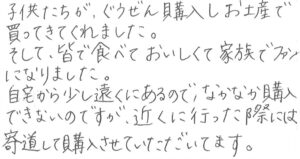 子供たちが、ぐうぜん購入しお土産で
買ってきてくれました。
そして、皆で食べておいしくて家族でファン
になりました。
自宅から少し遠くにあるので、なかなか購入
できないのですが、近くに行った際には
寄道して購入させていただいてます。